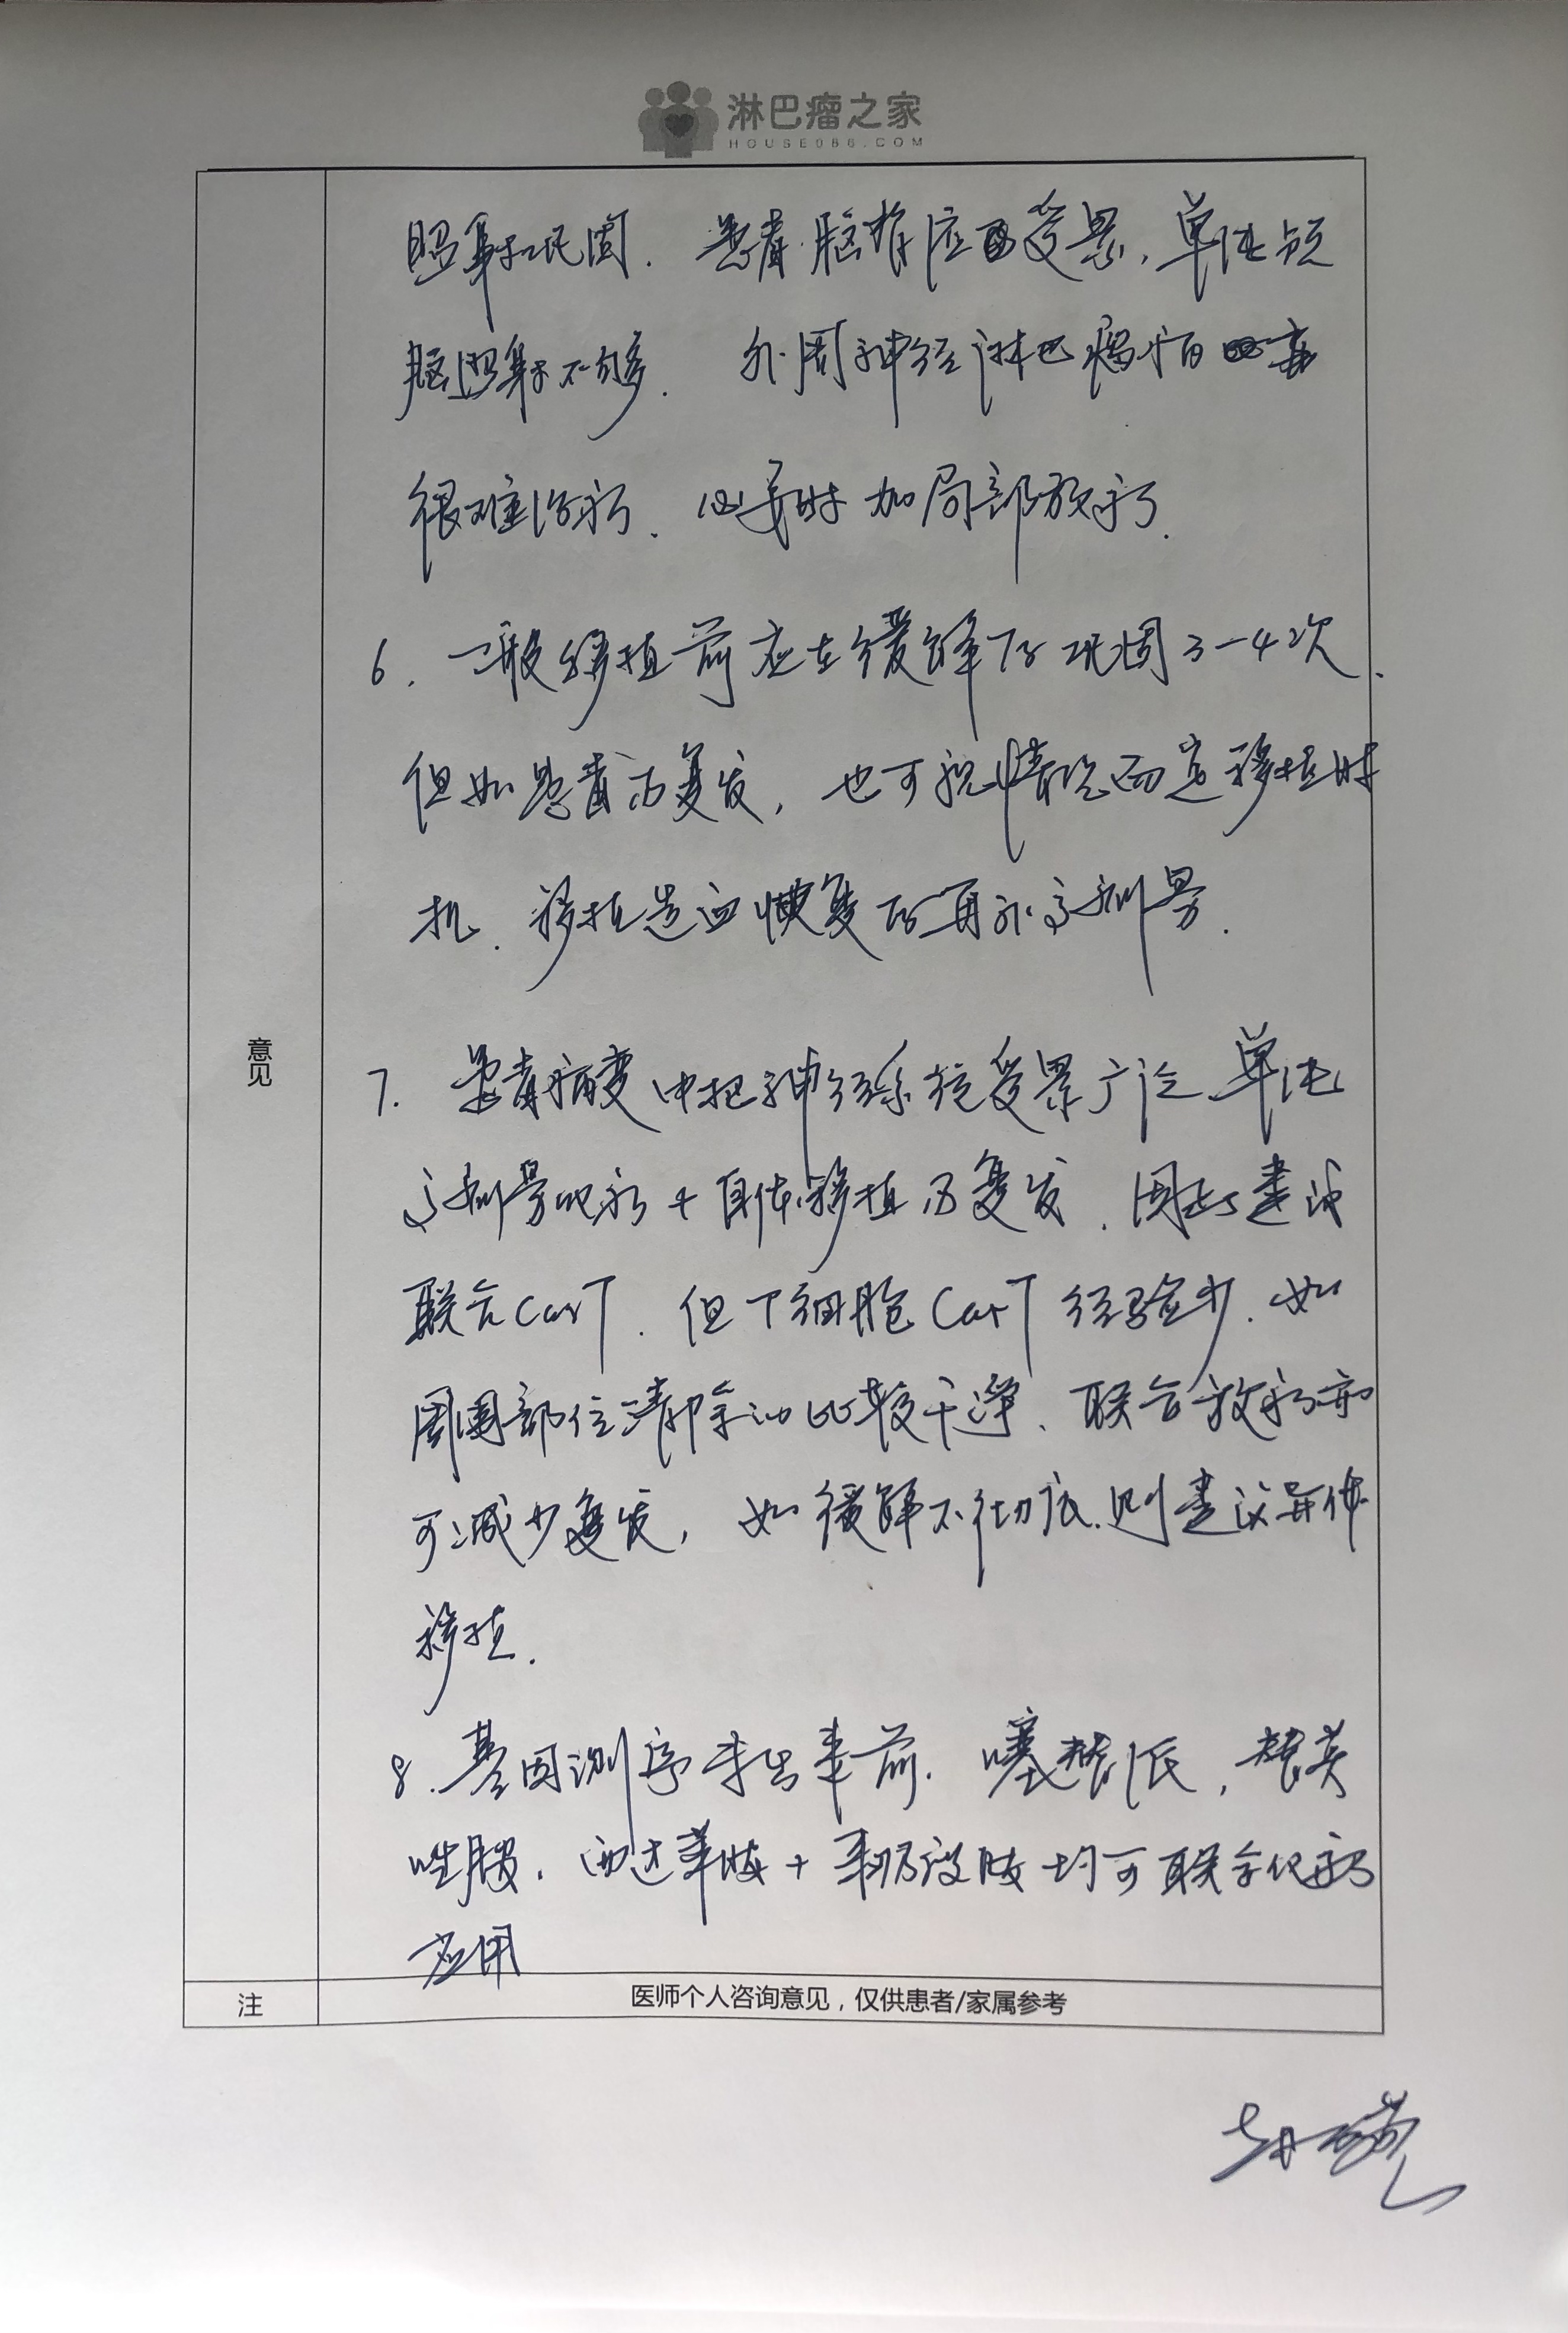 淋巴瘤之家
HOUSE086.COM
照射巩固. 患者脑脊应受累, 单纯颅
脑照射不够. 外周神经淋巴瘤
很难治疗. 必要时加局部放疗.
6. 一般移植前应在缓解后巩固3-4次.
但如患者为复发, 也可视情况而定移植时
机. 移植造血恢复后再行高剂量.
意见
7. 患者病变中枢神经系统受累广泛 单纯
高剂量化疗+自体移植易复发. 因此建议
联合CarT. 但T细胞CarT经验少. 如
周围部位清除的比较干净、联合放疗亦
可减少复发, 如缓解不彻底.则建议异体
移植.
8. 基因测序未出来前. 噻替派, 替莫
唑胺. 西达苯胺+来那度胺均可联合化疗
应用
注 医师个人咨询意见，仅供患者/家属参考